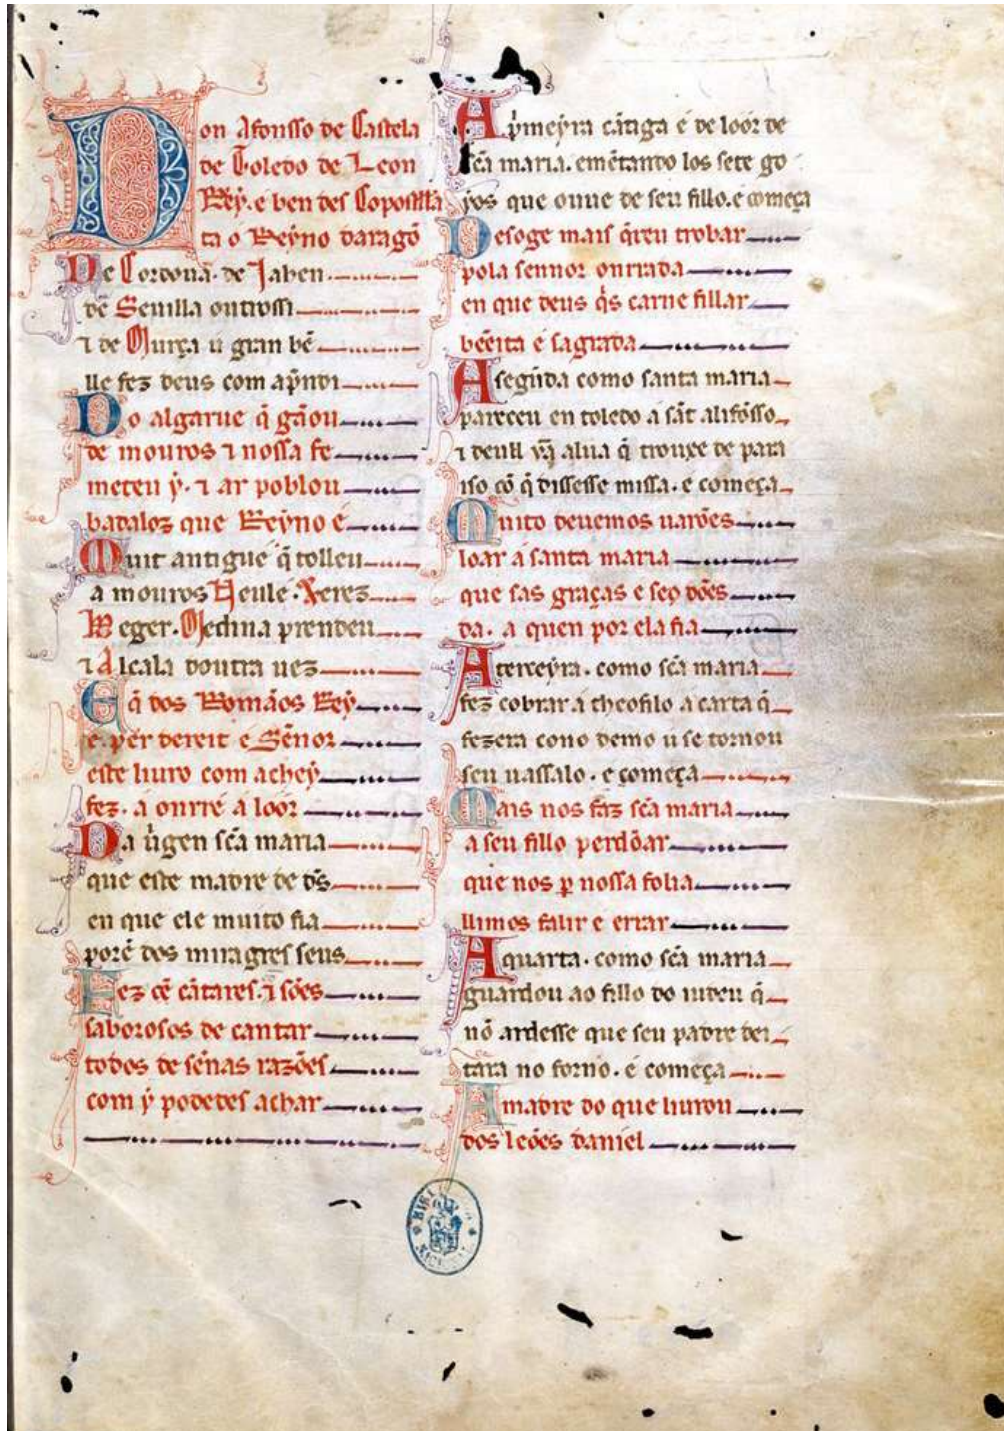 Don Afonsso de Castela
de Toledo de Leon
Rey. e ben des Compostella
ta o Reyno daragõ
De Cordoua. de Jahen
de Seuilla outrossi
⁊ de Murça u gran bẽ
lle fez deus com apndi
Do algarue q̃ gãou
de mouros ⁊ nossa fe
meteu ẏ. ⁊ ar poblou
badaloz que Reyno é
Muit antigué q̃ tolleu
a mouros Neulé. Xerez
Beger. Medina prendeu
⁊ Alcala doutra uez
E q̃ dos Romãos Rey
é. per dereit e Sẽnor
este liuro com achey
fez. á onrré á loór
Da uígen sc̃a maria
que este madre de ds̃
en que ele muito fia
porẽ dos miragres seus
Fez cẽ cãtares. ⁊ sões
saborosos de cantar
todos de sẽnas razões
com ẏ podedes achar
A pmeyra cãtiga é de loór de
sc̃a maria. emẽtando los sete go
yos que ouue de seu fillo. e começa
Desoge mais q̃reu trobar
pola sennor onrrada
en que deus q̇s carne fillar
bẽeita e sagrada
A segũda como santa maria
pareceu en toledo a sãt alifõsso
⁊ deull ũa alua q̃ trouxe de para
iso cõ q̃ dissesse missa. e começa
Muito deuemos uarões
loar á santa maria
que sas graças e seos dões
da. a quen por ela fia
A terceyra. como sc̃a maria
fez cobrar á theofilo a carta q̃
fezera cono demo u se tornou
seu uassalo. e começa
Mais nos faz sc̃a maria
a seu fillo perdõar
que nos p nossa folia
llimos falir e errar
A quarta. como sc̃a maria
guardou ao fillo do iudeu q̃
nõ ardesse que seu padre dei
tara no forno. é começa
A madre do que liurou
dos leões daniel